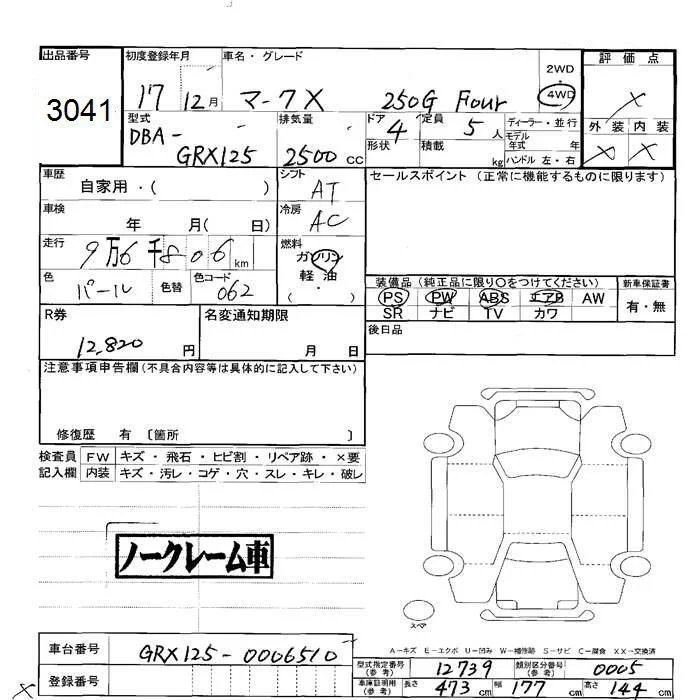 出品番号 初度登録年月 車名・グレード 2WD 評価点
3041 17 12月 マークX 250G Four ・ 4WD ×
型式 排気量 ドア 定員 ディーラー・並行 外装 内装
DBA- GRX125 2500cc 4 5人 モデル年式 年 × ×
形状 積載 kg ハンドル 左・右
車歴 シフト セールスポイント (正常に機能するものに限ります)
自家用・( ) AT
車検 冷房
年 月( 日) AC
走行 燃料
9万6千806km ガソリン
色 色替 色コード 軽油
パール 062 ・
( )
装備品 (純正品に限り○をつけてください) 新車保証書
PS PW ABS エアB AW 有・無
SR ナビ TV カワ
R券 名変通知期限 後日品
12,820円 月 日
注意事項申告欄 (不具合内容等は具体的に記入して下さい)
修復歴 有 〔箇所 〕
検査員 FW キズ・飛石・ヒビ割・リペア跡・×要
記入欄 内装 キズ・汚レ・コゲ・穴・スレ・キレ・破レ
ノークレーム車
スペア
A-キズ E-エクボ U-凹み W-補修跡 S-サビ C-腐食 XX-交換済
車台番号 GRX125-0006510 型式指定番号(参考) 12739 類別区分番号(参考) 0005
登録番号 車庫証明用(参考) 長さ 473cm 幅 177cm 高さ 144cm
×